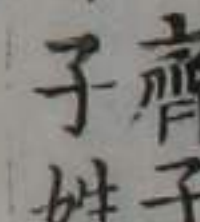 齊子
子姓